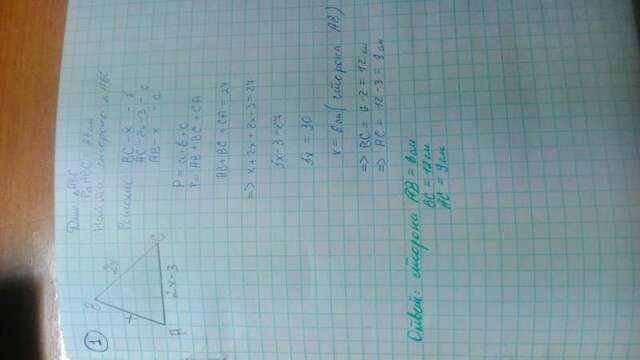 1
Дано: △ABC
P△ABC = 27см
Найти стороны △ABC
B
x
2x
A
2x-3
C
Решение BC-x - b
AC-2x-3 - c
AB-x - a
P = a+b+c
P = AB + BC + CA
AB+BC+CA=27
=> x+2x+2x-3=27
5x-3=27
5x = 30
x = 6см (сторона AB)
=> BC = 6·2 = 12см
=> AC = 12-3 = 9см
Ответ: сторона AB = 6см
BC = 12см
AC = 9см